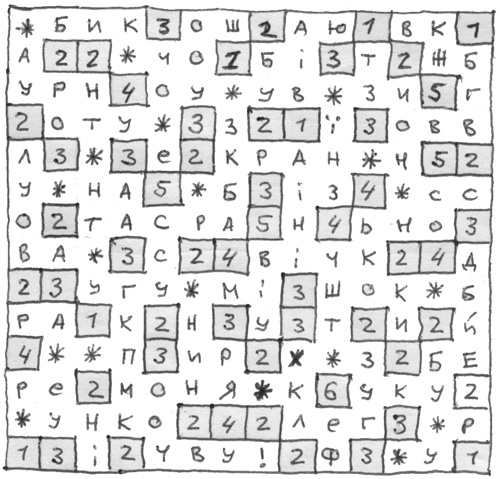 * Б И К 3 О Ш 2 А Ю 1 В К 1
А 2 2 * Ч О 1 Б І 3 Т 2 Ж Б
У Р Н 4 О У * У В * З И 5 Г
2 О Т У * 3 З 2 1 Ї 3 О В В
Л 3 * 3 Е 2 К Р А Н * Н 5 2
У * Н А 5 * Б 3 І З 4 * С С
О 2 Т А С Р А 5 Н 4 Ь Н О 3
В А * 3 С 2 4 В І Ч К 2 4 Д
2 3 У Г У * М І 3 Ш О К * Б
Р А 1 К 2 Н 3 У 3 Т 2 И 2 Й
4 * * П 3 И Р 2 * * З 2 Б Е
Р Е 2 М О Н Я * К 6 У К У 2
* У Н К О 2 4 2 Л Е Г 3 * Р
1 3 І 2 Ч В У ! 2 Ф 3 * У 1